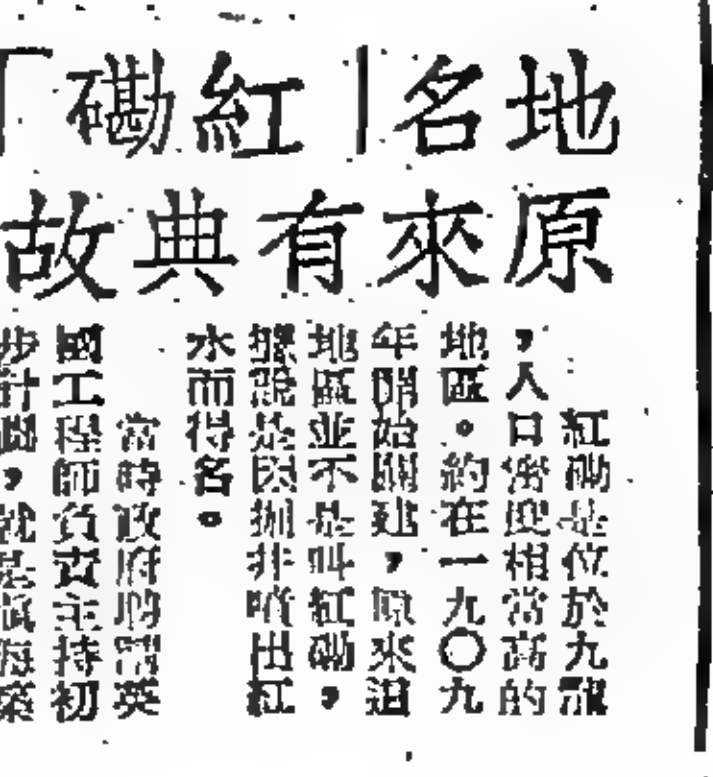 地名「紅磡」
原來有典故
紅磡是位於九龍
，人口密度相當高的
地區。約在一九〇九
年開始闢建，原來這
地區並不是叫紅磡，
據說是因掘井噴出紅
水而得名。
當時政府聘請英
國工程師負責主持初
步計劃，就是填海築